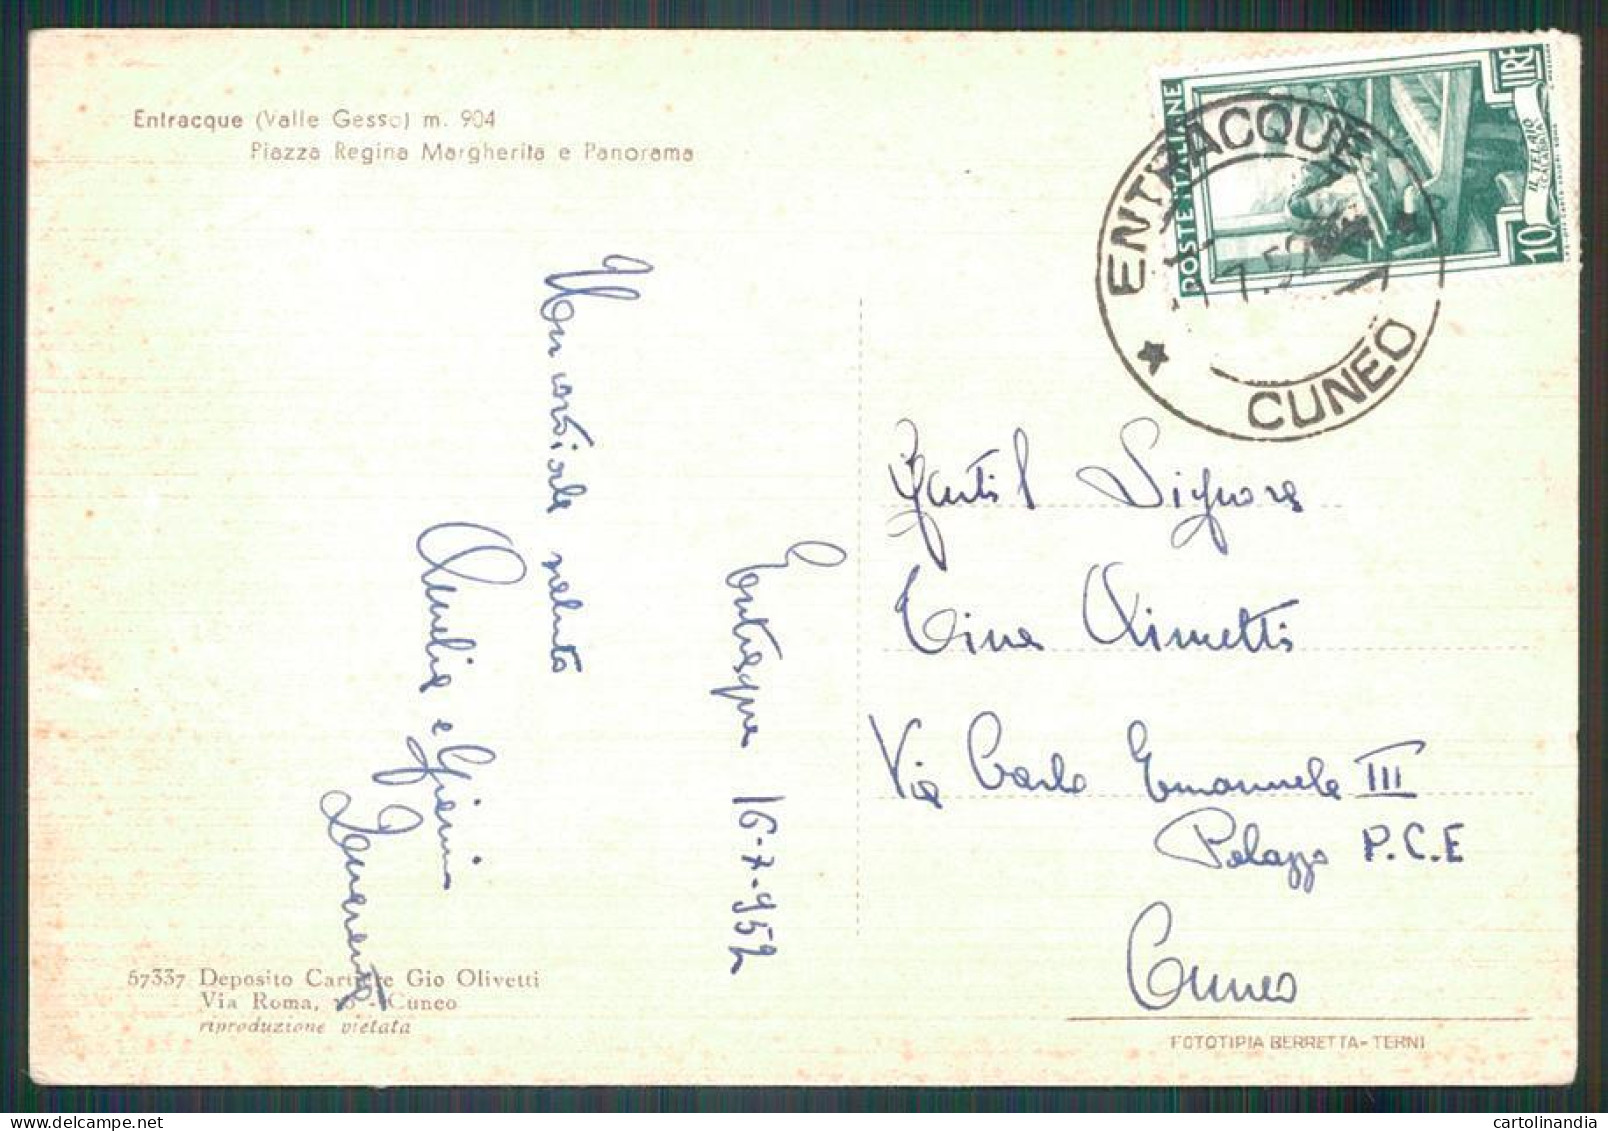 Entracque (Valle Gesso) m. 904
Piazza Regina Margherita e Panorama
POSTE ITALIANE
10 LIRE
IL TELAIO
CALABRIA
ENTRACQUE
7.52
CUNEO
Un cordiale saluto
Amelia e Gianni
Entracque 16-7-952
Gentil Signora
Tina
Via Carlo Emanuele III
Palazzo P.C.E
Cuneo
57337 Deposito Cartiere Gio Olivetti
Via Roma, - Cuneo
riproduzione vietata
FOTOTIPIA BERRETTA - TERNI
cartolinandia